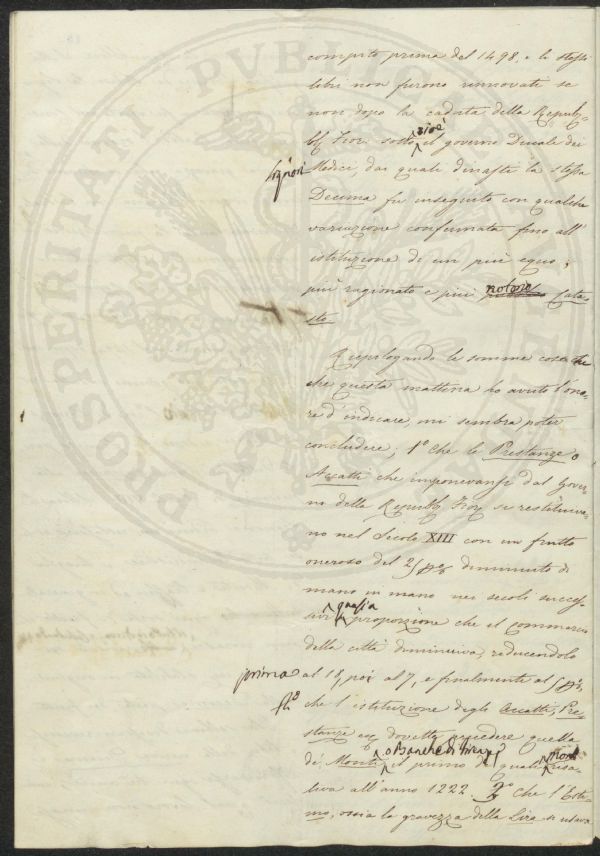 PROSPERITATI PUBLICAE
compito prima del 1498, e le stesse
libri non furono rinnovati se
non dopo la caduta della Repub-
bca Fior. sotto cioè il governo Ducale dei
Signori Medici, dai quali dinasti la stessa
Decima fu inseguito con qualche
variazione confermata fino all'
istituzione di un più equo,
più ragionato e più nobile Cata-
sto
Riepilogando le somme cose
che questa mattina ho avuto l'ono-
re d'indicare, mi sembra poter
concludere, 1° che le Prestanze o
Accatti che imponevansi dal Gover-
no della Repubb. Fior. si restituiva-
no nel Secolo XIII con un frutto
oneroso del 25 diminuito di
mano in mano nei secoli succes-
sivi quasi a proporzione che il commercio
della città diminuiva, reducendolo
prima al 18, poi al 7, e finalmente al 5
che l'istituzione degli Accatti, Pre-
stanze dovette precedere quella
dei Monti, o Banche di il primo de' quali risa-
liva all'anno 1222. 2° che l'Esti-
mo, ossia la gravezza della Lira si usava